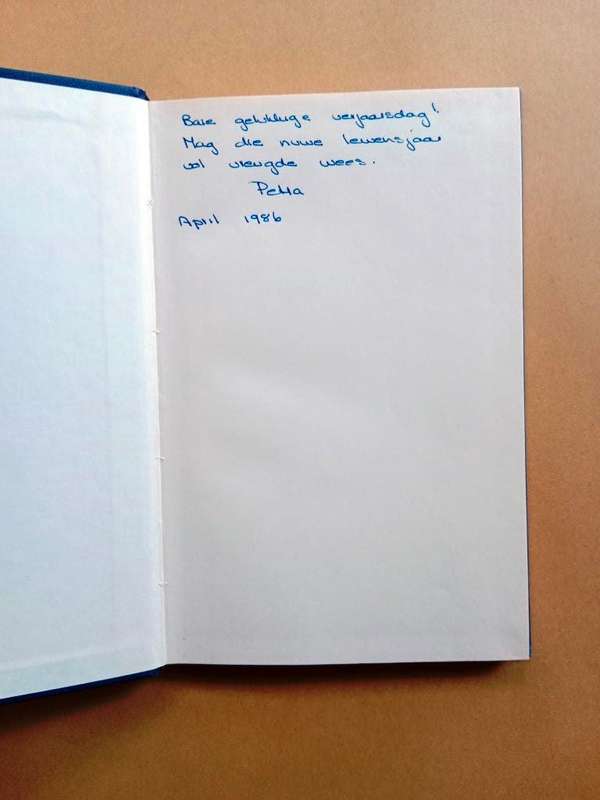 Baie gelukkige verjaarsdag!
Mag die nuwe lewensjaar
vol vreugde wees.
Petra
April 1986